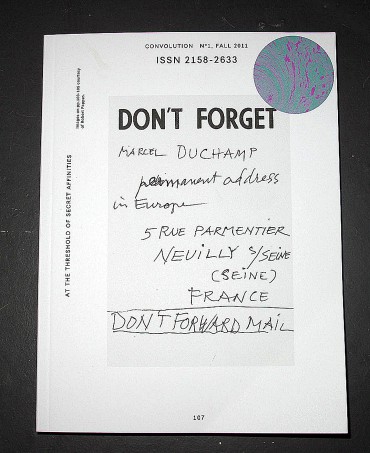 CONVOLUTION Nº1, FALL 2011
ISSN 2158-2633
Images on pp.103-106 courtesy
of Robert Pepper.
DON'T FORGET
MARCEL DUCHAMP
permanent address
in Europe
5 RUE PARMENTIER
NEUILLY S/SEINE
(SEINE)
FRANCE
DON'T FORWARD MAIL
AT THE THRESHOLD OF SECRET AFFINITIES
107